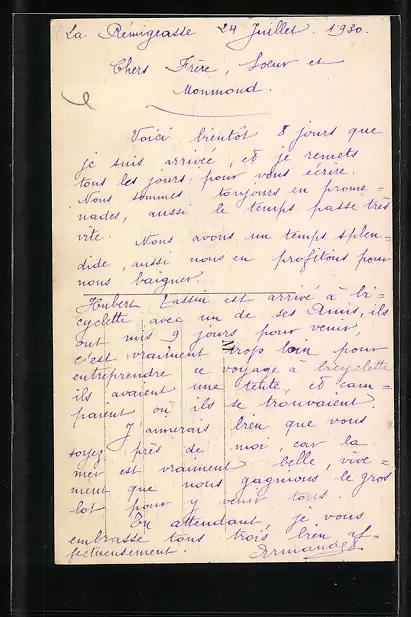 La Rémigeasse 24 Juillet. 1930.
Chers Frère, Soeur et
Monmond.
Voici bientôt 8 jours que
je suis arrivée, et je remets
tous les jours pour vous écrire.
Nous sommes toujours en prome-
nades, aussi le temps passe très
vite. Nous avons un temps splen-
dide, aussi nous en profitons pour
nous baigner.
Hubert est arrivé à bi-
cyclette avec un de ses Amis, ils
ont mis 9 jours pour venir,
c'est vraiment trop loin pour
entreprendre ce voyage à bicyclette
ils avaient une tente, et cam-
paient où ils se trouvaient.
J'aimerais bien que vous
soyez près de moi, car la
mer est vraiment belle, vive-
ment que nous gagnions le gros
lot pour y venir tous.
En attendant, je vous
embrasse tous trois bien af-
fectueusement. Armande